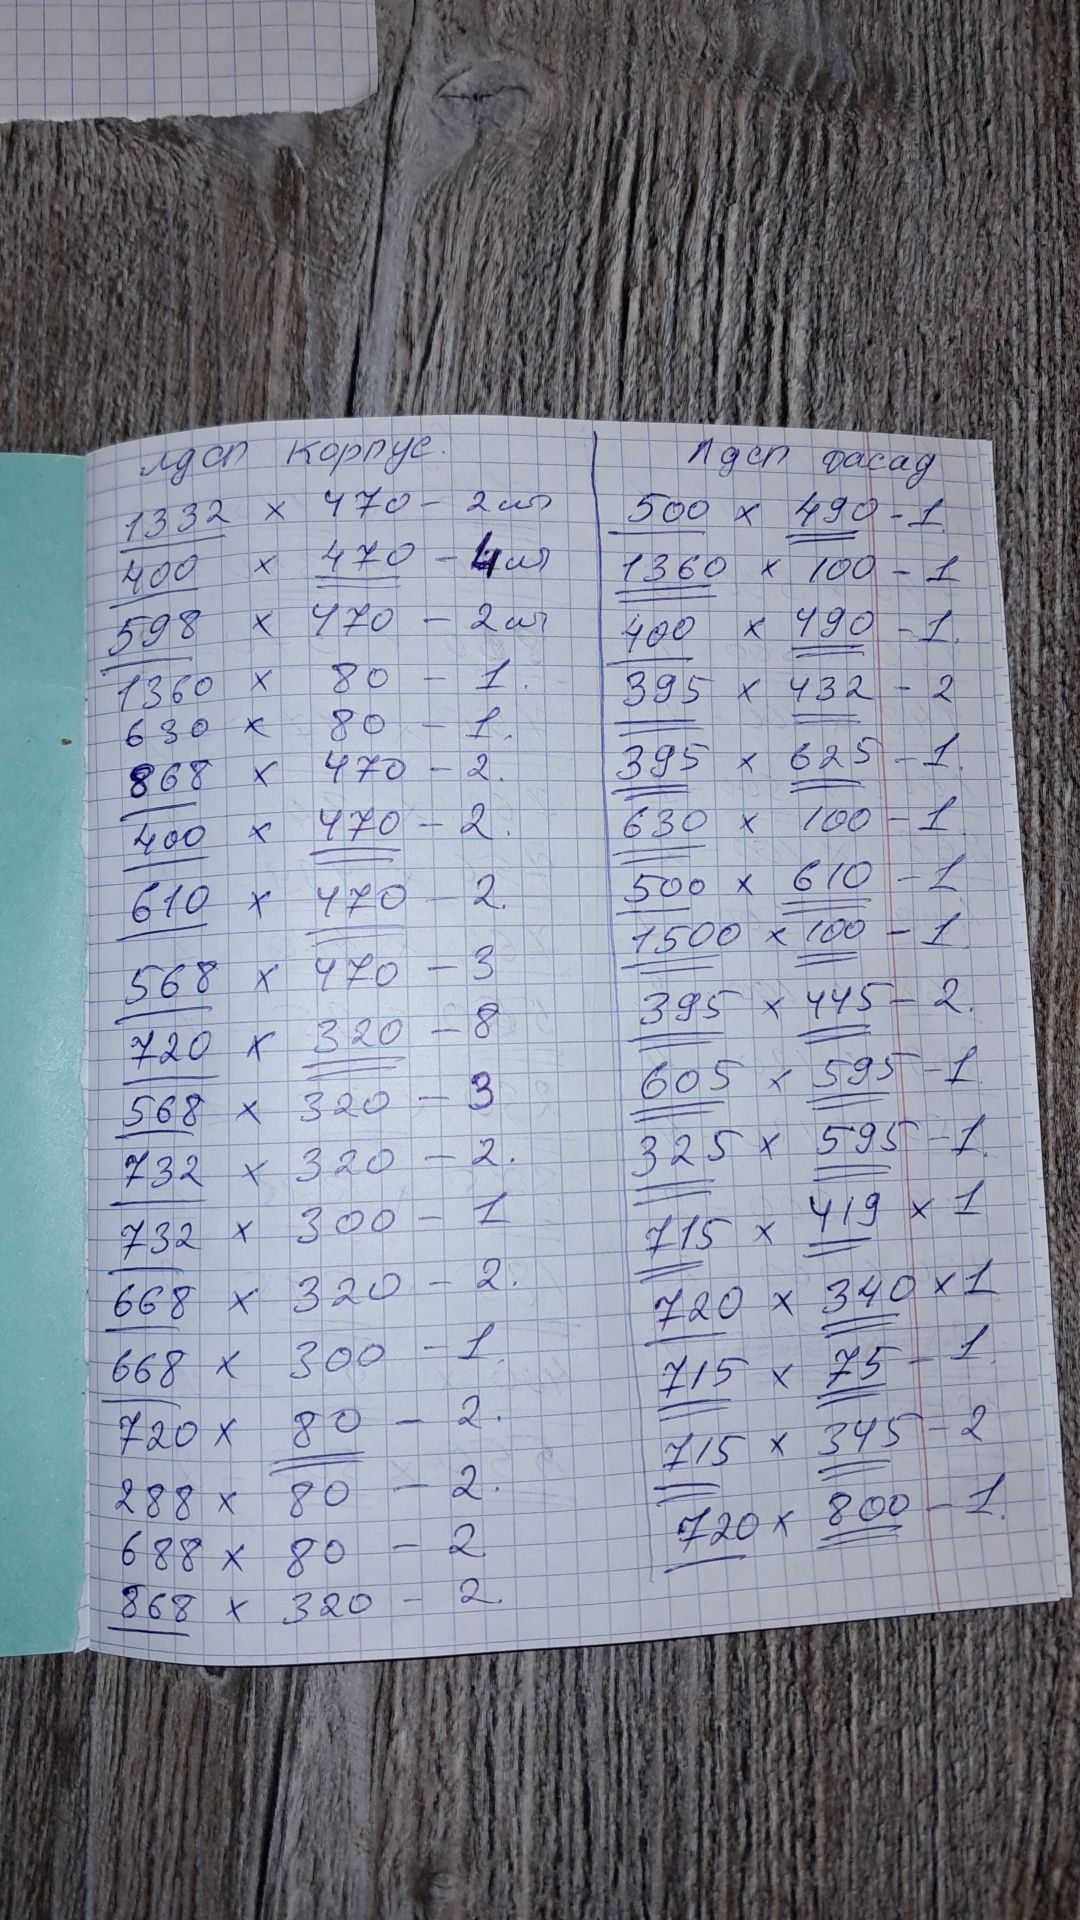 лдсп корпус.
1332 x 470 - 2шт
400 x 470 - 4шт
598 x 470 - 2шт
1360 x 80 - 1.
630 x 80 - 1.
868 x 470 - 2.
400 x 470 - 2.
610 x 470 - 2.
568 x 470 - 3
720 x 320 - 8
568 x 320 - 3
732 x 320 - 2.
732 x 300 - 1
668 x 320 - 2.
668 x 300 - 1.
720 x 80 - 2.
288 x 80 - 2.
688 x 80 - 2
868 x 320 - 2.
Лдсп фасад
500 x 490 - 1
1360 x 100 - 1
400 x 490 - 1.
395 x 432 - 2
395 x 625 - 1.
630 x 100 - 1
500 x 610 - 1
1500 x 100 - 1
395 x 445 - 2.
605 x 595 - 1
325 x 595 - 1.
715 x 419 x 1
720 x 340 x 1
715 x 75 - 1.
715 x 345 - 2
720 x 800 - 1.